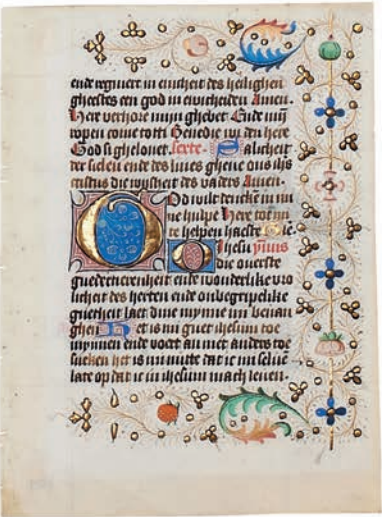 ende regneert in eincheit des heilighen
gheestes een god in ewicheiden Amen.
Here verhore mijn ghebet Ende mijn
ropen come tot ti Benedie wi den here
God si ghelovet. Sexte. Salicheit
der sielen ende des lives gheve ons ihs
cristus die wijsheit des vaders Amen.
God wilt dencke in mi
ne hulpe Here tot mi
te helpen haeste
O ihesu
die overste
goedertierenheit ende wonderlike vro
licheit des herten ende onbegripelike
guetheit laet dine mynne mi
ghen Het is mi guet ihesum toe
mynnen ende voert an niet anders toe
sueken het is mi nutte dat ic mi selve
late op dat ic in ihesum mach leven.